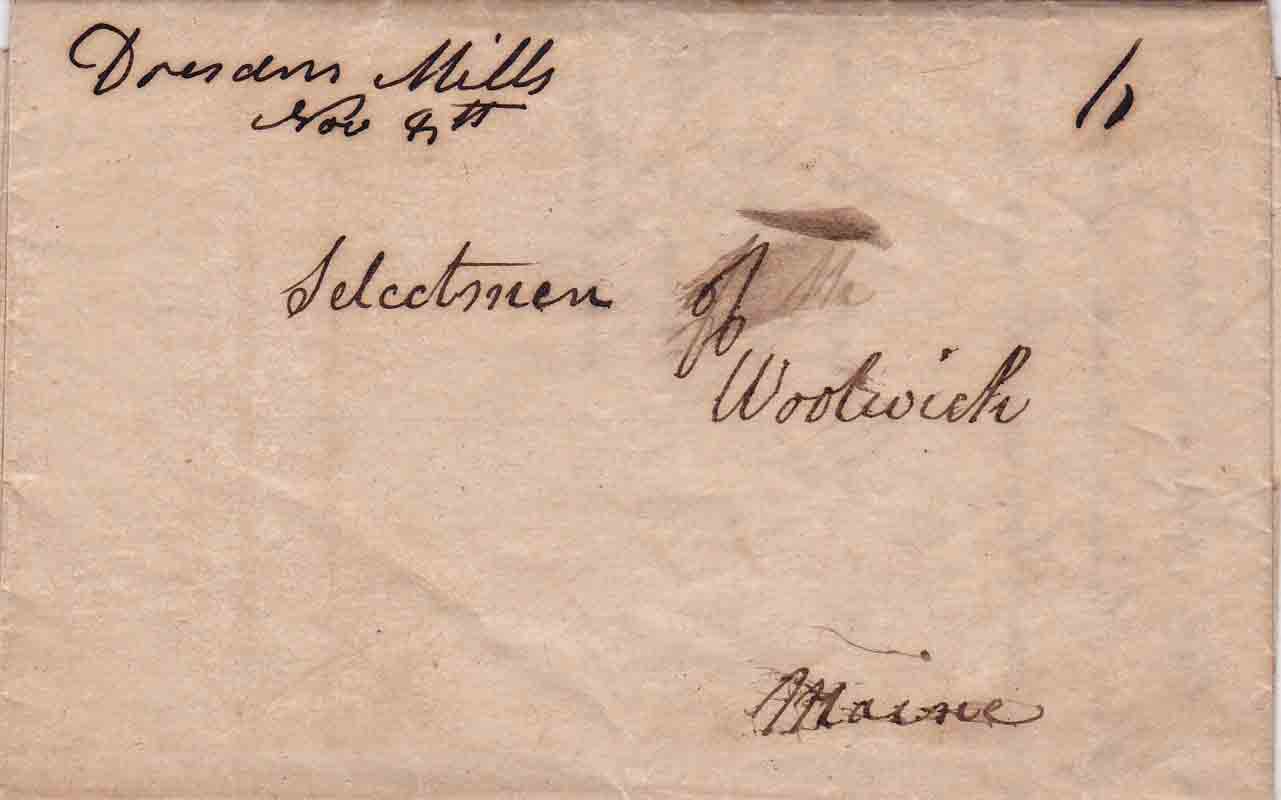 Dresden Mills
Nov 8th
6
Selectmen of
Woolwich
Maine